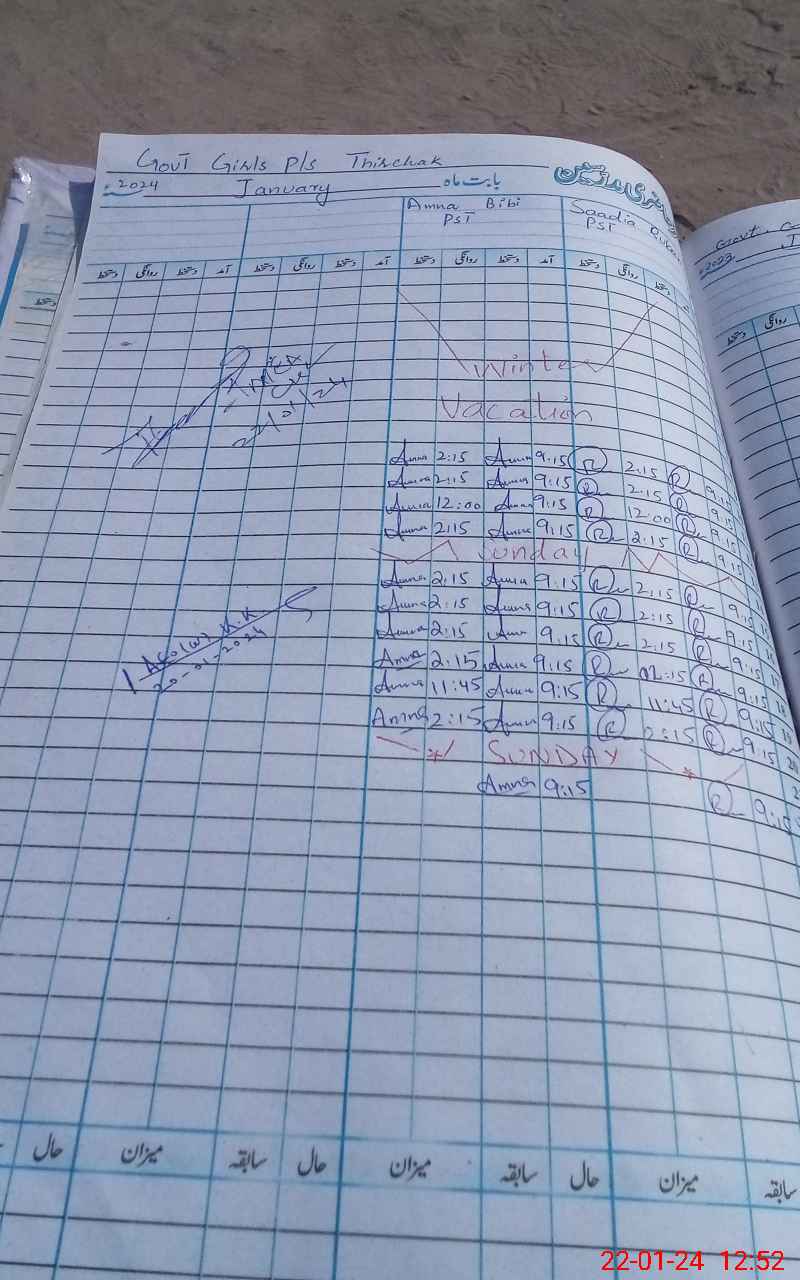 Govt Girls P/s Thirchak
2024 January بابت ماہ حاضری مدرسین
Amna Bibi Saadia
PST PST
دستخط روانگی دستخط آمد دستخط روانگی دستخط آمد دستخط روانگی دستخط آمد دستخط روانگی دستخط
Winter
Vacation
22/01/24
Amna 2:15 Amna 9:15 R 2:15 R 9:15
Amna 2:15 Amna 9:15 R 2:15 R 9:15
Amna 12:00 Amna 9:15 R 12:00 R 9:15
Amna 2:15 Amna 9:15 R 2:15 R 9:15
Sunday
Amna 2:15 Amna 9:15 R 2:15 R 9:15
Amna 2:15 Amna 9:15 R 2:15 R 9:15
Amna 2:15 Amna 9:15 R 2:15 R 9:15
Amna 2:15 Amna 9:15 R 02:15 R 9:15
Amna 11:45 Amna 9:15 R 11:45 R 9:15
Amna 2:15 Amna 9:15 R 2:15 R 9:15
20-01-2024
SUNDAY
Amna 9:15 R 9:15
حال میزان سابقہ حال میزان سابقہ حال میزان سابقہ
Govt. G
2023 J
دستخط روانگی
22-01-24 12:52